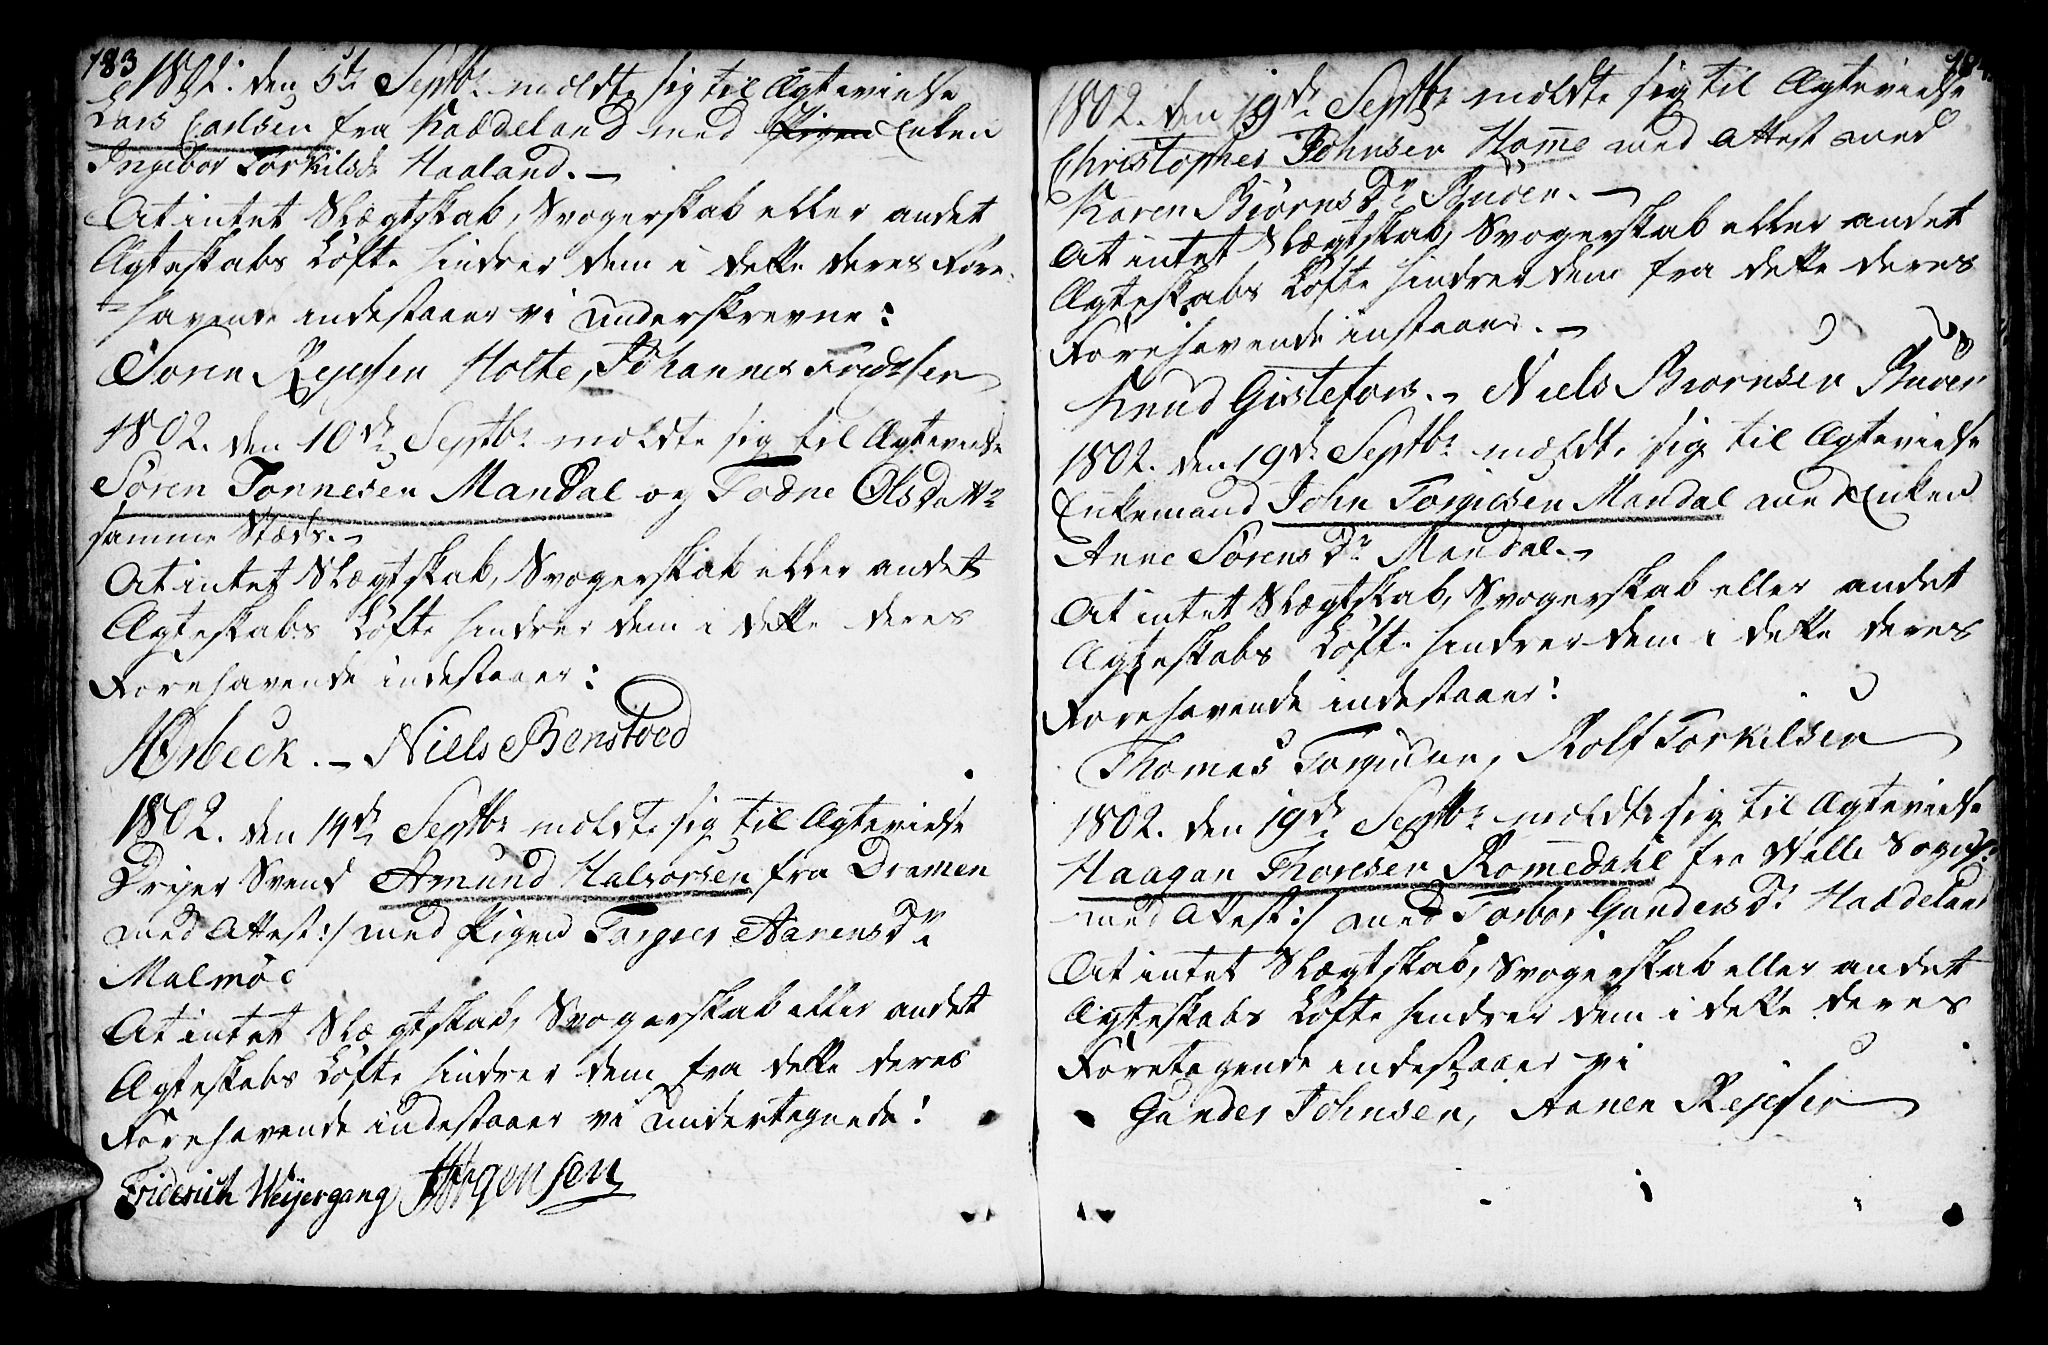 183
1802. den 5te Septbr meldte sig til Ægtevielse
Lars Carlsen fra Kaadeland med Pigen Enken
Ingebor Torkilsdr Haaland. –
At intet Slægtskab, Svogerskab eller andet
Ægteskabs Løfte hindrer dem i dette deres Fore-
havende indestaaer vi underskrevne:
Søren Rejersen Holte, Johannes Fredrsen
1802. den 10de Septbr meldte sig til Ægtevielse
Søren Tønnesen Mandal og Todne Olsdattr
samme Stæds. –
At intet Slægtskab, Svogerskab eller andet
Ægteskabs Løfte hindrer dem i dette deres
Forehavende indestaaer:
Orbeck. – Niels Benstoed
1802. den 14de Septbr meldte sig til Ægtevielse
Drejer Svend Amund Halvorsen fra Dramen
med Attest :/ med Pigen Torgier Aanensdr
Malmøe
At intet Slægtskab, Svogerskab eller andet
Ægteskabs Løfte hindrer dem fra dette deres
Forehavende indestaaer vi undertegnede!
Friderich Weyergang Jørgensen
184
1802. den 19de Septbr meldte sig til Ægtevielse
Christopher Johnsen Home med Attest med
Karen Biørnsdr Buøen. –
At intet Slægtskab, Svogerskab eller andet
Ægteskabs Løfte hindrer dem fra dette deres
Forehavende instaaer. –
Knud Gislefors. – Niels Biørnsen Buøen
1802. den 19de Septbr meldte sig til Ægtevielse
Enkemand John Torgiesen Mandal med Enken
Anne Sørensdr Mandal. –
At intet Slægtskab, Svogerskab eller andet
Ægteskabs Løfte hindrer dem i dette deres
Forehavende indestaaer!
Thomas Torgiusen, Rolf Torkilsen
1802. den 19de Septbr meldte sig til Ægtevielse
Haagan Thoresen Romedahl fra Walle Sogn /:
med Attest :/ med Torbor Gundersdr Haadeland
At intet Slægtskab, Svogerskab eller andet
Ægteskabs Løfte hindrer dem i dette deres
Foretagende indestaaer vi
Gunder Johnsen, Aanen Rejersen